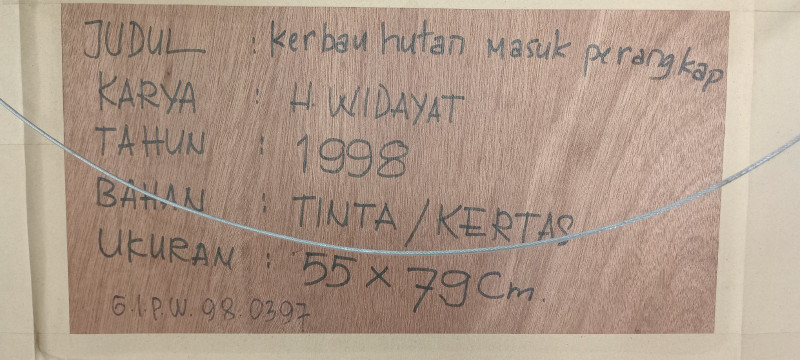 JUDUL : kerbau hutan masuk perangkap
KARYA : H. WIDAYAT
TAHUN : 1998
BAHAN : TINTA / KERTAS
UKURAN : 55 x 79 Cm.
G.I.P.W. 98.0397